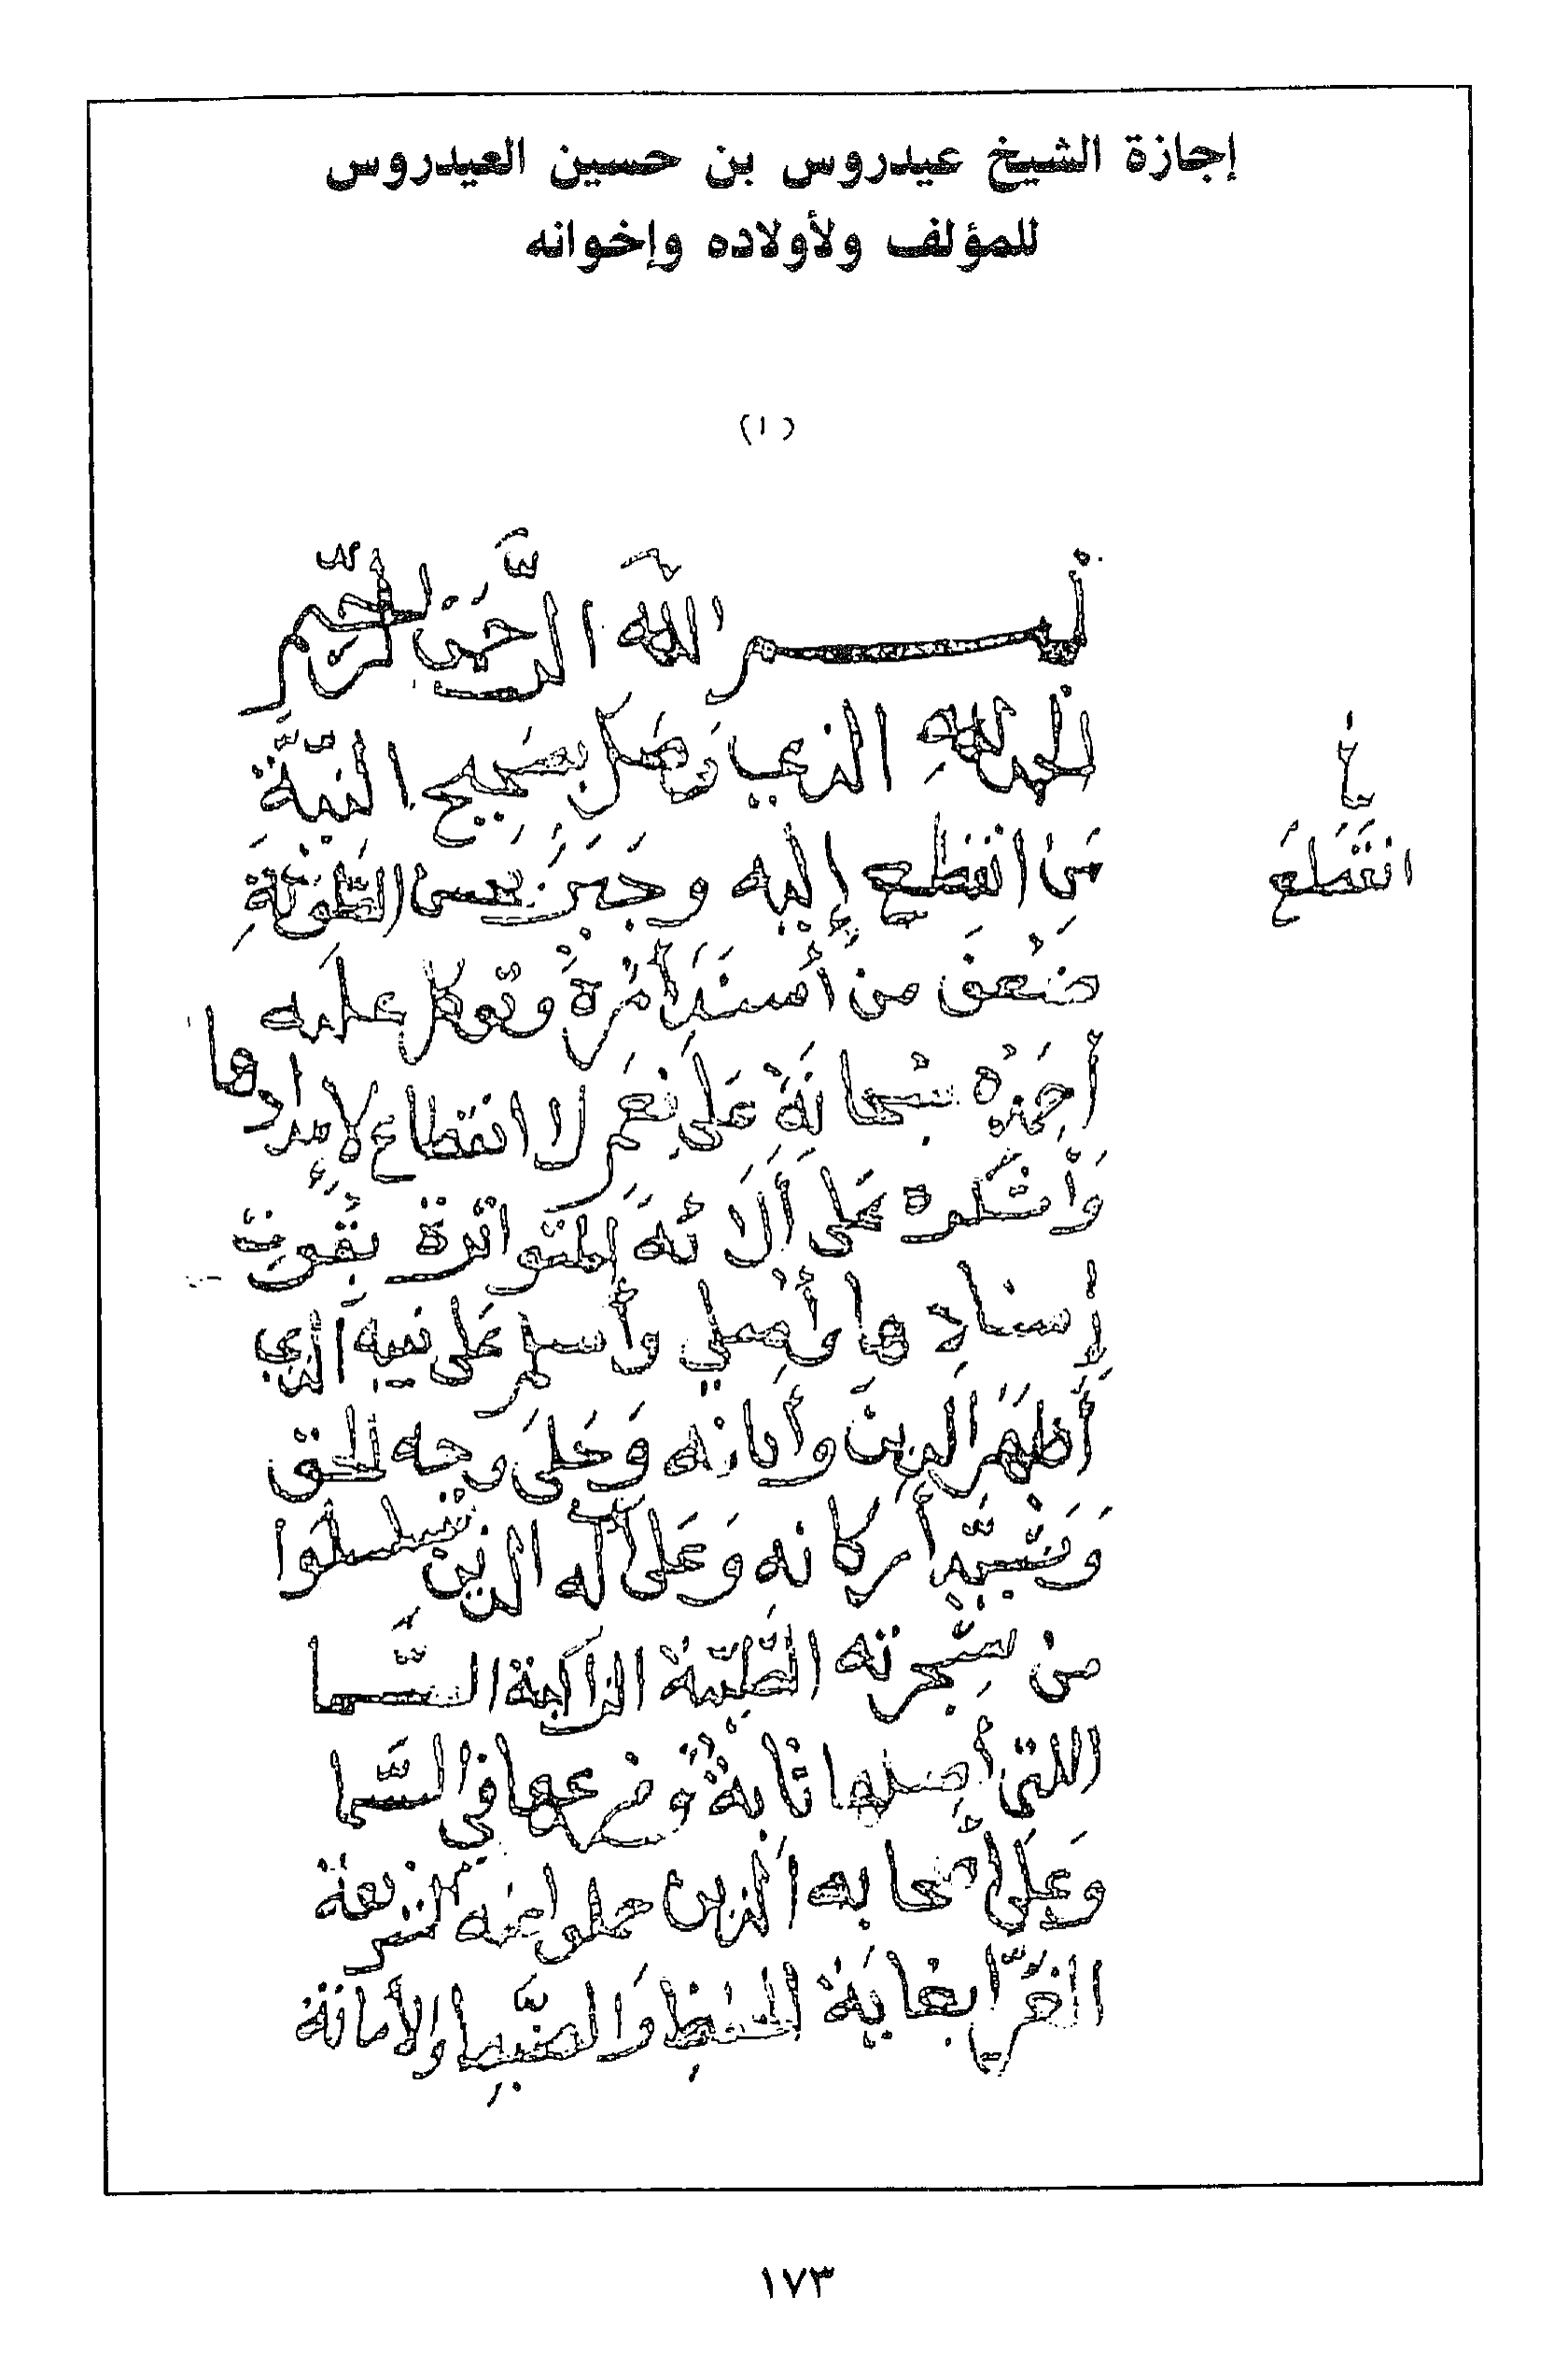 إجازة الشيخ عيدروس بن حسين العيدروس
للمؤلف ولأولاده وإخوانه
(١)
بسم الله الرَّحمن الرحيم
الحمد للهِ الذي وَصَل بصَحِيح النيَّة
مَن انقطع إِليه وجَبَرَ بحسن الطَّوِيَّةِ
ضَعفَ من أَسنَدَ أَمْرَهُ وتوكل عليه
أَحمَدُه سبحانَهُ عَلى نِعَمٍ لا انقطاع لإمدادها
وَأَشكره عَلى أَلَائه المتواترة بقوت
إِسنادِها وأُصَلي وأسلم عَلى نبيه الذي
أَظهَرَ الدين وأبانه وَجَلى وجه الحق
وَشَيَّد أركانه وَعَلى آله الذين تسلسلوا
من شَجرته الطَّيِّبة الزاكية الشَّما
اللتى أَصلها ثابةٌ وفرعها في السَّما
وَعَلى أَصحابه الذين حملوا عنه الشريعة
الغرّا بغايَة الحفظِ وَالضَّبطِ والأمانة
خ
انقَطَعَ
١٧٣